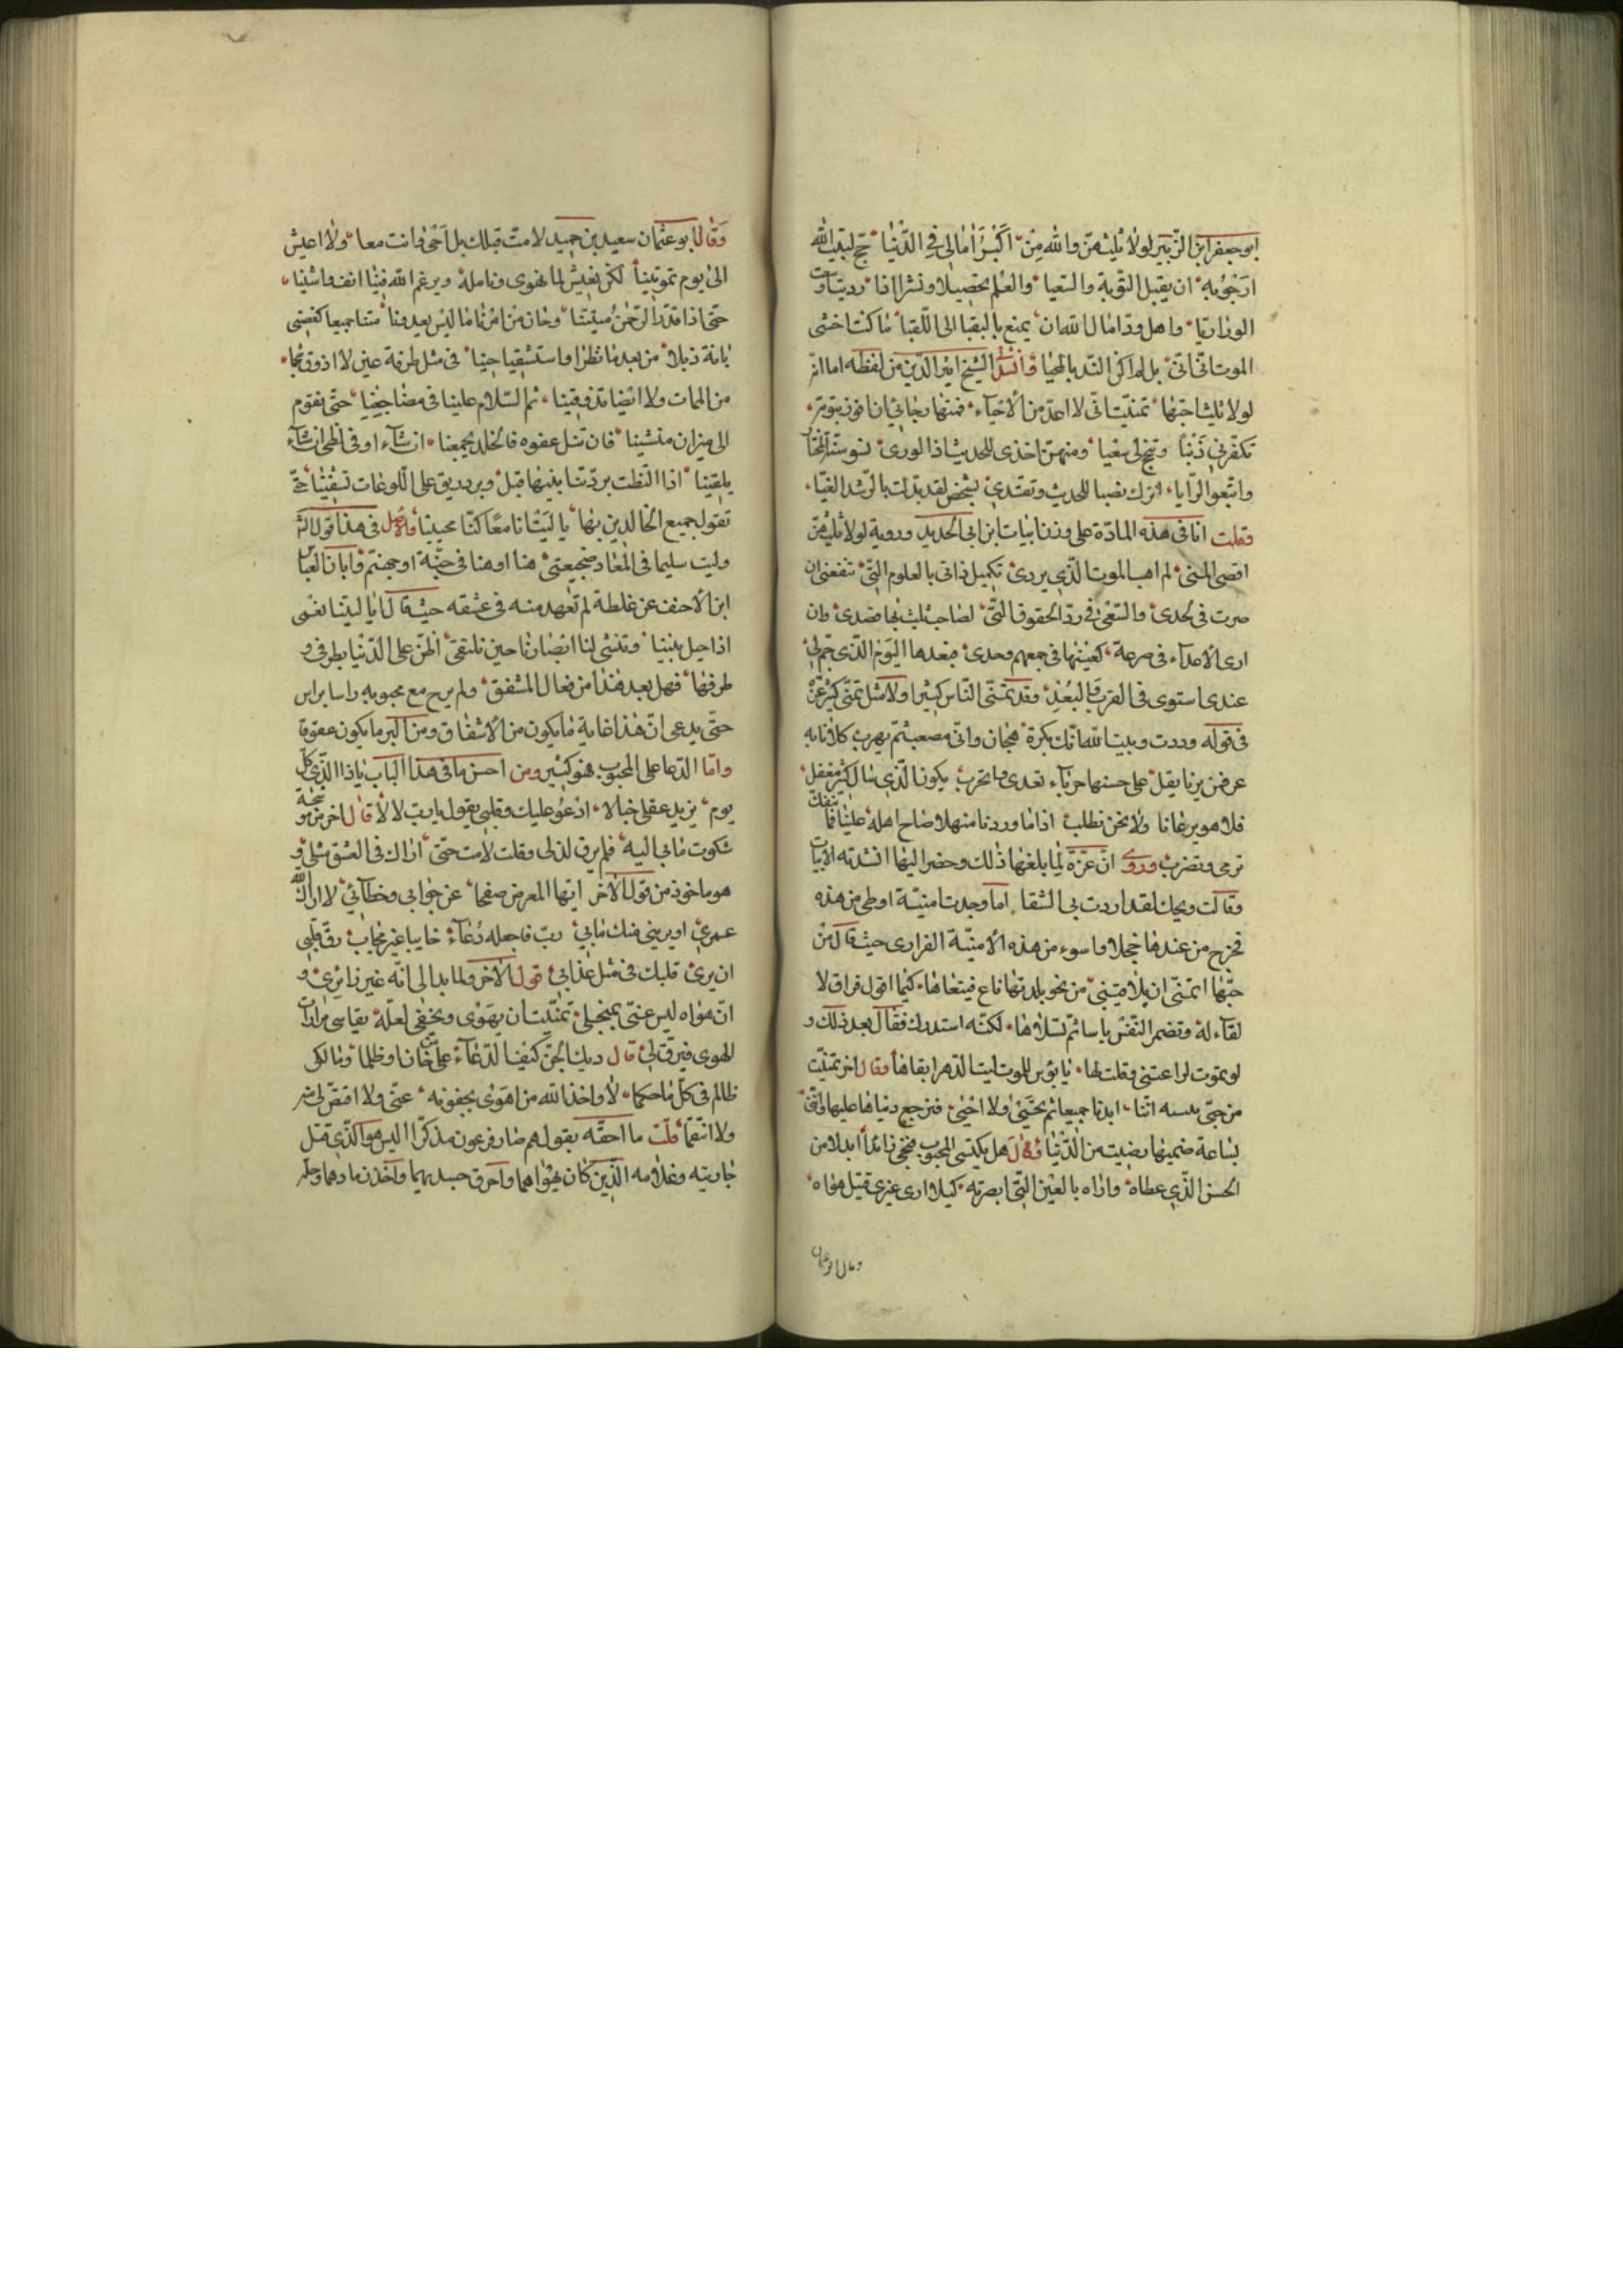 ابو جعفر ابن الزبير لولا ثلث هن والله من اكبر امالي في الدنيا حج لبيت الله
ارجو به ان يقبل التوبة والسعيا والعلم تحصيلا ونشرا اذا رويت اوسعت
الورى ريا واهل ود اسال الله ان يمتع بالبقيا الى اللقيا ما كنت اخشى
الموت انى اتى بل لم اكن التذ بالمحيا وانشد الشيخ اثير الدين من لفظه اما انه
لولا ثلث احبها تمنيت اني لا اعد من الاحياء فمنها رجائي ان افوز بتوبة
تكفر لي ذنبا وتنجح لي سعيا ومنهن اخذي للحديث اذا الورى نسو سنة المختار
واتبعوا الرايا اتترك نصا للحديث وتقتدي بشخص لقد بدلت بالرشد الغيا
فقلت انا في هذه المادة على وزن ابيات ابن ابي الحديد ورويه لولا ثلث هن
اقصى المنى لم اهب الموت الذي يردي تكميل ذاتي بالعلوم التي تنفعني ان
صرت في لحدي والسعي في رد الحقوق التي لصاحب نلت بها قصدي وان
ارى الاعداء في صرعة كفيتها في جمعهم وحدي فبعدها اليوم الذي حم لي
عندي استوى في القرب والبعد وقد تمنى الناس كثيرا ولا مثل تمني كثير عزة
في قوله وددت وبيت الله انك بكرة هجان واني مصعب ثم نهرب كلانا به
عر فمن يرنا يقل على حسنها جرباء تعدي واجرب نكون لذي مال كثير مغفل
فلا هو يرعانا ولا نحن نطلب اذا ما وردنا منهلا صاح اهله علينا فما ننفك
نرمى ونضرب وروي ان عزة لما بلغها ذلك وحضر اليها انشدته الابيات
وقالت ويحك لقد اردت بي الشقا اما وجدت امنية اوطى من هذه
فخرج من عندها خجلا واسوء من هذه الامنية الفزاري حيث قال من
حبها اتمنى ان يلاقيني من نحو بلدتها ناع فينعاها كيما اقول فراق لا
لقاء له وتضمر النفس ياسا ثم تسلاها لكنه استدرك فقال بعد ذلك و
لو تموت لراعتني وقلت لها يا بؤس للموت ليت الدهر ابقاها وقال اخر تمنيت
من حبي بثينة اننا ابدنا جميعا ثم تحيى ولا احيى فترجع دنياها عليها وانني
بساعة ضميها رضيت من الدنيا وقال هل يكتسي المحبوب فتحي زائدا ابدلا من
الحسن الذي عطاه واراه بالعين التي ابصرته كيلا ارى غيري قتيل هواه
وقال ابو عثمان
وقال ابو عثمان سعيد بن حميد لا مت قبلك بل احيى وانت معا ولا اعيش
الى يوم تموتينا لكن نعيش لما نهوى ونامله ويرغم الله فينا انف واشينا
حتى اذا قدر الرحمن ميتتنا وحان من امرنا ما ليس يعدونا متنا جميعا كغصني
بانة ذبلا من بعد ما نظرا واستسقيا حينا في مثل طرفة عين لا اذوق شجا
من الممات ولا ايضا تذوقينا ثم السلام علينا في مضاجعنا حتى نقوم
الى ميزان منشينا فان ننل عفوه فالخلد يجمعنا ان شاء او في لظى ان شاء
يلقينا اذا التظت بردتنا بينها قبل وبرد ريق على اللوعات تسفينا حتى
تقول جميع الخالدين بها يا ليتنا نا معا كنا محبينا والاصل في هذا قول الشاعر
وليت سليما في المعاد ضجيعتي هنا او هنا في جنة او جهنم وابان العباس
ابن الاحنف عن غلظة لم تعهد منه في عشقه حيث قال ايا ليتنا نعمى
اذا حيل بيننا وتنشى لنا ابصارنا حين نلتقي اضن على الدنيا بطرفي و
طرفها فهل بعد هذا من فعال المشفق ولم يرح مع محبوبه راسا براس
حتى يدعى ان هذا غاية ما يكون من الاشفاق ومن البر ما يكون عقوقا
واما الدعا على المحبوب فهو كثير ومن احسن ما في هذا الباب يا ذا الذي كل
يوم يزيد عقلي خبالا ادعو عليك وقلبي يقول يا رب لا لا قال اخر من محبة
شكوت ما بي اليه فلم يرق لذلي وقلت لا مت حتى اراك في العشق مثلي و
هو ماخوذ من قول الاخر ايها المعرض صفحا عن جوابي وخطابي لا اراك الله
عمري او يريني منك ما بي رب فاجعله دعاء خايبا غير مجاب رق قلبي
ان يرى قلبك في مثل عذابي قول الاخر ولما بدا لي انه غير زائري و
ان هواه ليس عني بمنجلي تمنيت ان يهوى ويخفى لعله يقاسي مرارات
الهوى فيرق لي قال ديك الجن كيف الدعاء على من خان او ظلما ومالكي
ظالم في كل ما حكما لا واخذ الله من اهوى بجفوته عني ولا اقتص لي منه
ولا انتقما قلت ما احقه بقولهم صار فرعون مذكرا اليس هو الذي قتل
جاريته وغلامه الذين كان يهواهما واحرق جسديهما واخذ رمادهما وجعله